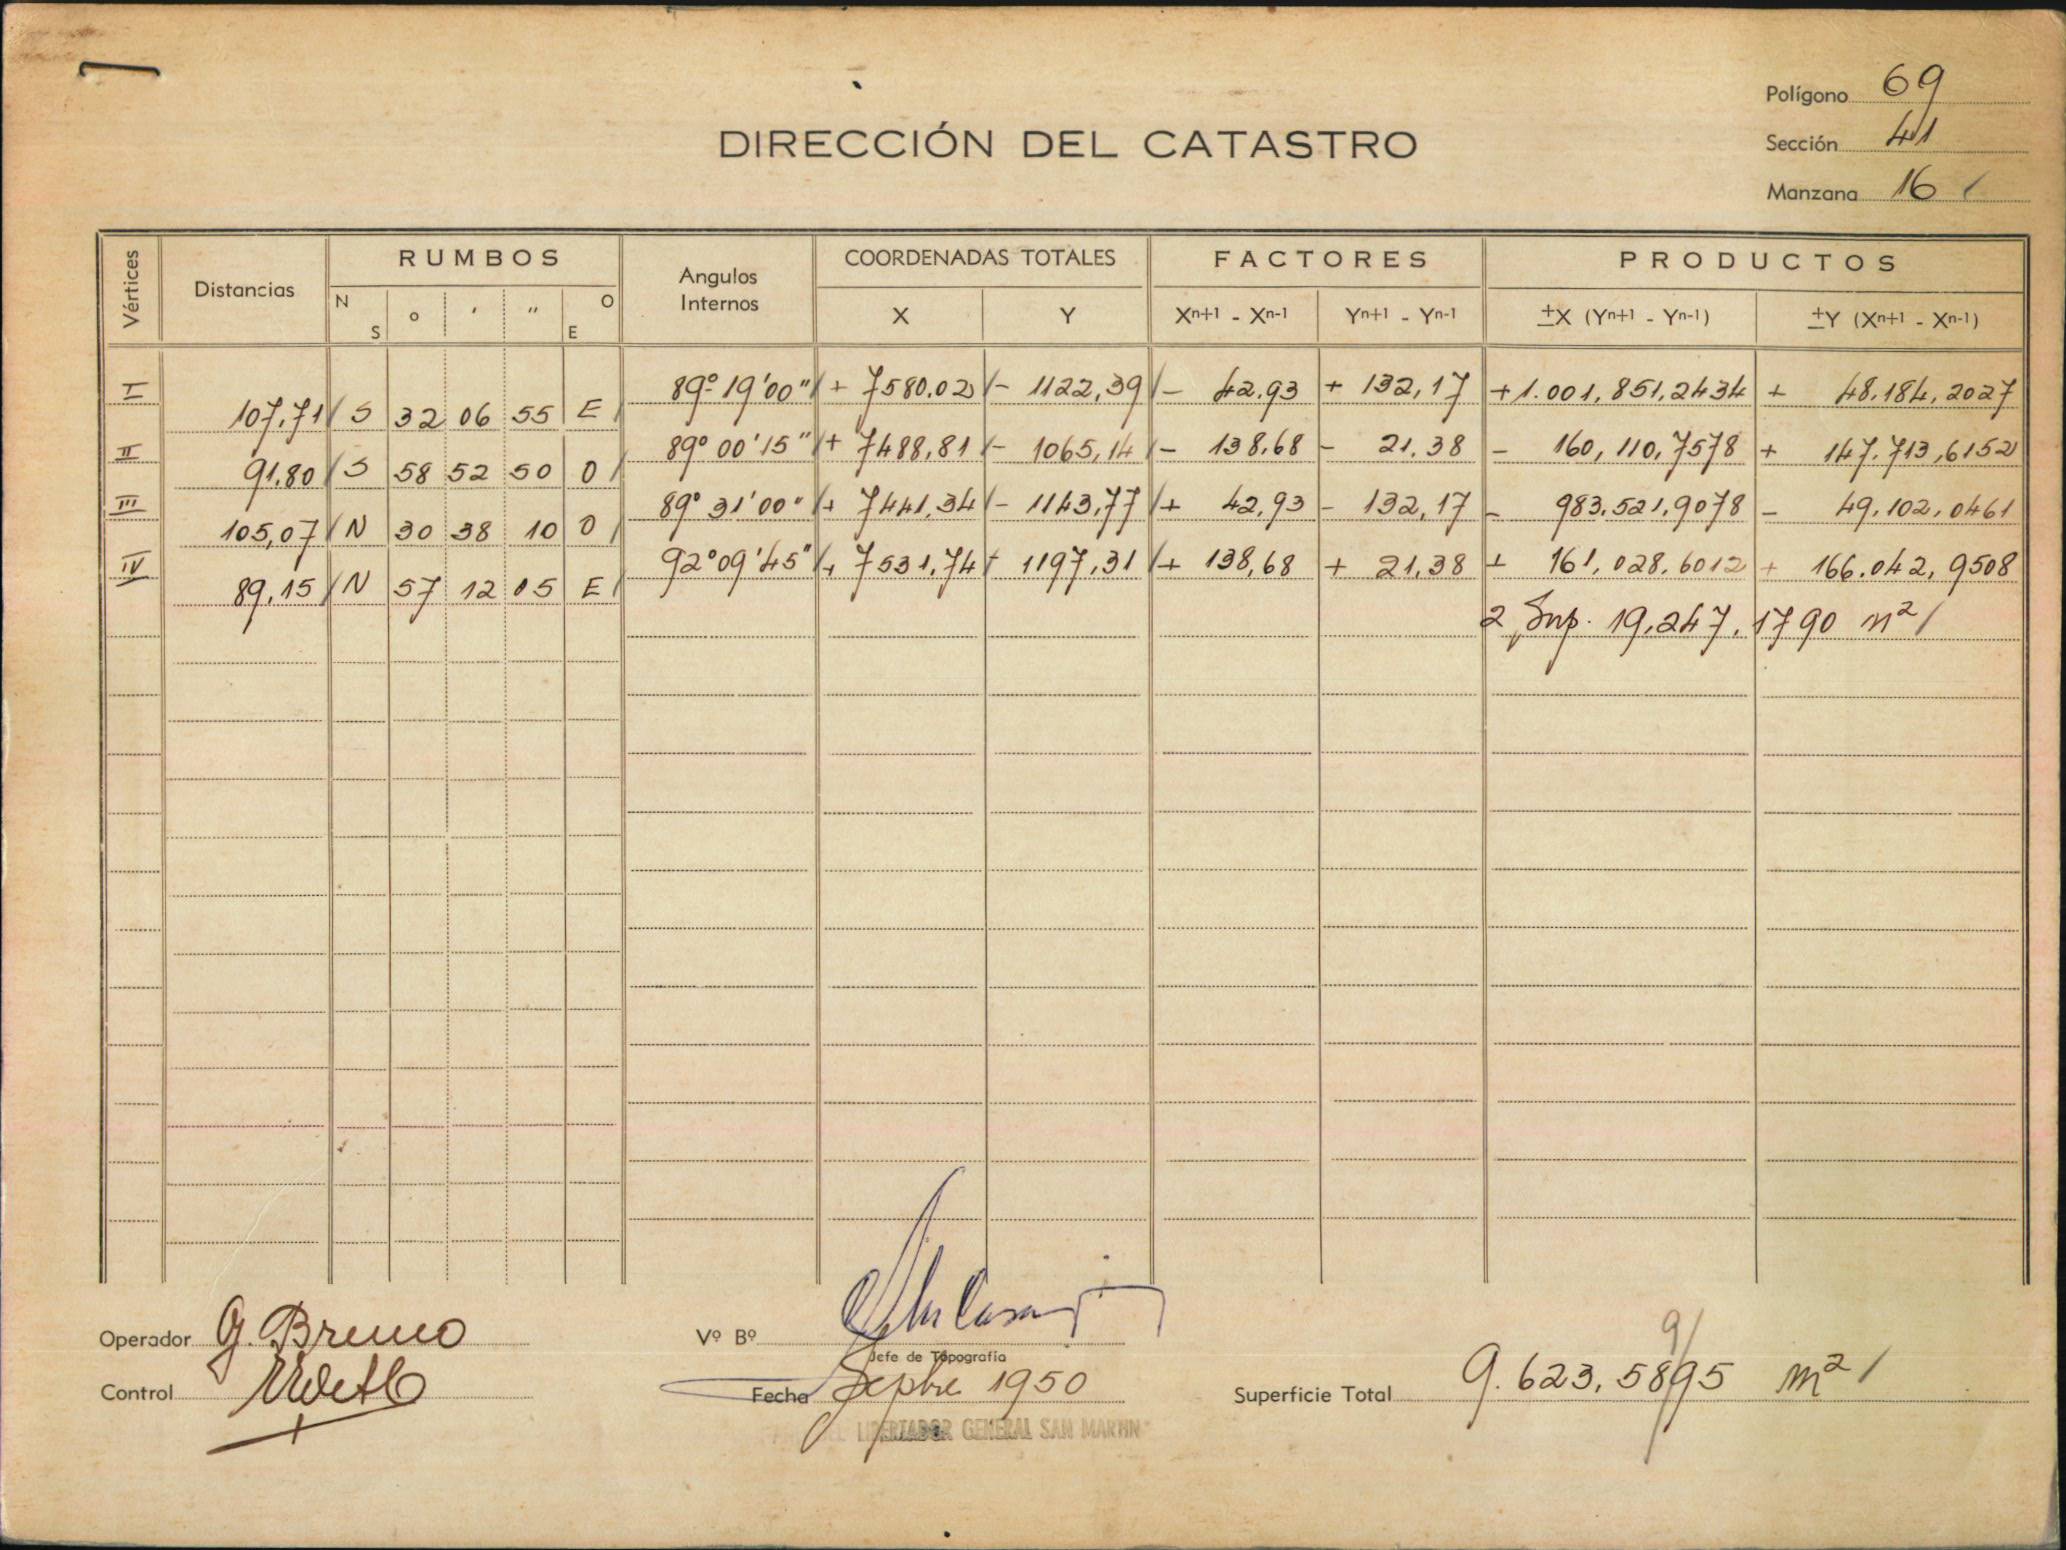 Polígono 69
DIRECCIÓN DEL CATASTRO
Sección 41
Manzana 16 /
Vértices Distancias RUMBOS Angulos Internos COORDENADAS TOTALES FACTORES PRODUCTOS
N S o ' " O E X Y Xn+1 - Xn-1 Yn+1 - Yn-1 ±X (Yn+1 - Yn-1) ±Y (Xn+1 - Xn-1)
I 89º 19' 00" / + 7580.02 / - 1122,39 / - 42.93 + 132,17 + 1.001,851,2434 + 48.184,2027
107,71 / S 32 06 55 E /
II 89º 00' 15" / + 7488,81 / - 1065,14 / - 138,68 - 21.38 - 160,110,7578 + 147.713,6152
91.80 / S 58 52 50 O /
III 89º 31' 00" / + 7441,34 / - 1143,77 / + 42,93 - 132,17 - 983.521,9078 - 49.102,0461
105,07 / N 30 38 10 O /
IV 92º 09' 45" / + 7531,74 - 1197,31 / + 138,68 + 21.38 + 161.028.6012 + 166.042,9508
89,15 / N 57 12 05 E /
2 Sup. 19,247.1790 m² /
Operador G. Bruno
Vº Bº
Jefe de Topografía
Control
Fecha Sepbre 1950
Superficie Total 9.623.5895 m² /
9/
LIBERTADOR GENERAL SAN MARTIN